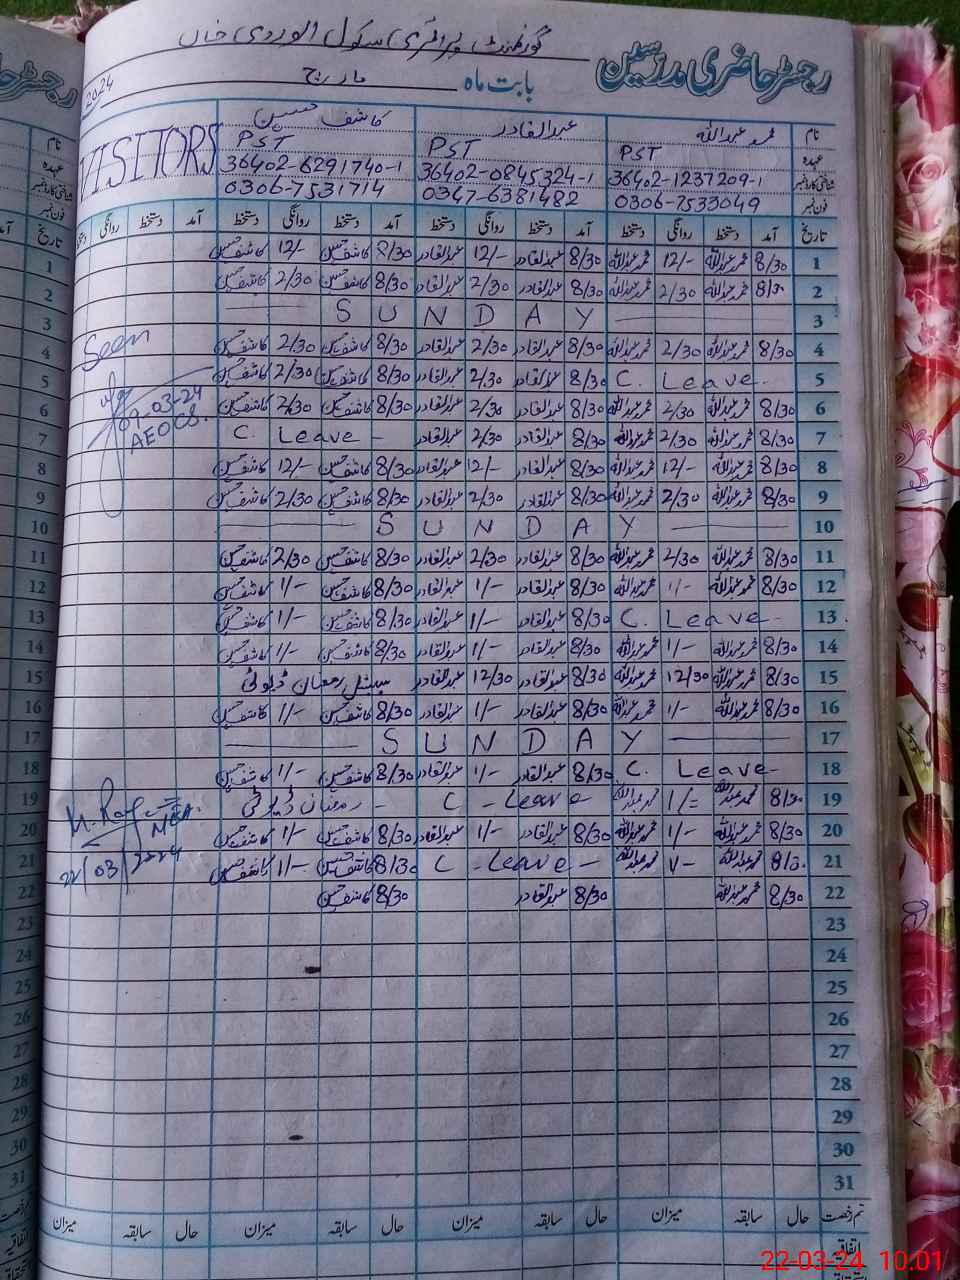 رجسٹر حاضری مدرسین
گورنمنٹ پرائمری سکول الوردی خاں
بابت ماہ مارچ
2024
نام محمد عبداللہ عبدالقادر کاشف حسین VISITORS
عہدہ PST PST PST
شناختی کارڈ نمبر 36402-1237209-1 36402-0845324-1 36402-6291740-1
فون نمبر 0306-7533049 0347-6381482 0306-7531714
تاریخ آمد دستخط روانگی دستخط آمد دستخط روانگی دستخط آمد دستخط روانگی دستخط آمد دستخط روانگی دستخط
1 8/30 محمد عبداللہ 12/- محمد عبداللہ 8/30 عبدالقادر 12/- عبدالقادر 8/30 کاشف حسین 12/- کاشف حسین
2 8/30 محمد عبداللہ 2/30 محمد عبداللہ 8/30 عبدالقادر 2/30 عبدالقادر 8/30 کاشف حسین 2/30 کاشف حسین
3 SUNDAY
4 8/30 محمد عبداللہ 2/30 محمد عبداللہ 8/30 عبدالقادر 2/30 عبدالقادر 8/30 کاشف حسین 2/30 کاشف حسین Seen
5 C. Leave 8/30 عبدالقادر 2/30 عبدالقادر 8/30 کاشف حسین 2/30 کاشف حسین
6 8/30 محمد عبداللہ 2/30 محمد عبداللہ 8/30 عبدالقادر 2/30 عبدالقادر 8/30 کاشف حسین 2/30 کاشف حسین 09-03-24
7 8/30 محمد عبداللہ 2/30 محمد عبداللہ 8/30 عبدالقادر 2/30 عبدالقادر C. Leave -
8 8/30 محمد عبداللہ 12/- محمد عبداللہ 8/30 عبدالقادر 12/- عبدالقادر 8/30 کاشف حسین 12/- کاشف حسین
9 8/30 محمد عبداللہ 2/30 محمد عبداللہ 8/30 عبدالقادر 2/30 عبدالقادر 8/30 کاشف حسین 2/30 کاشف حسین
10 SUNDAY
11 8/30 محمد عبداللہ 2/30 محمد عبداللہ 8/30 عبدالقادر 2/30 عبدالقادر 8/30 کاشف حسین 2/30 کاشف حسین
12 8/30 محمد عبداللہ 1/- محمد عبداللہ 8/30 عبدالقادر 1/- عبدالقادر 8/30 کاشف حسین 1/- کاشف حسین
13 C. Leave - 8/30 عبدالقادر 1/- عبدالقادر 8/30 کاشف حسین 1/- کاشف حسین
14 8/30 محمد عبداللہ 1/- محمد عبداللہ 8/30 عبدالقادر 1/- عبدالقادر 8/30 کاشف حسین 1/- کاشف حسین
15 8/30 محمد عبداللہ 12/30 محمد عبداللہ 8/30 عبدالقادر 12/30 عبدالقادر سپیشل رمضان ڈیوٹی
16 8/30 محمد عبداللہ 1/- محمد عبداللہ 8/30 عبدالقادر 1/- عبدالقادر 8/30 کاشف حسین 1/- کاشف حسین
17 SUNDAY
18 C. Leave - 8/30 عبدالقادر 1/- عبدالقادر 8/30 کاشف حسین 1/- کاشف حسین
19 8/30 محمد عبداللہ 1/= محمد عبداللہ C - Leave - رمضان ڈیوٹی -
20 8/30 محمد عبداللہ 1/- محمد عبداللہ 8/30 عبدالقادر 1/- عبدالقادر 8/30 کاشف حسین 1/- کاشف حسین MEA
21 8/30 محمد عبداللہ 1/- محمد عبداللہ C - Leave - 8/30 کاشف حسین 1/- کاشف حسین 22/03/2024
22 8/30 محمد عبداللہ 8/30 عبدالقادر 8/30 کاشف حسین
23
24
25
26
27
28
29
30
31
قسم رخصت حال سابقہ میزان حال سابقہ میزان حال سابقہ میزان حال سابقہ میزان
اتفاقیہ
22-03-24 10:01